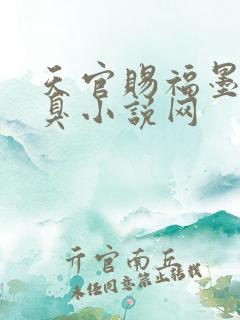 天官賜福墨
小説网
亓官南丘
未经同意禁止转载